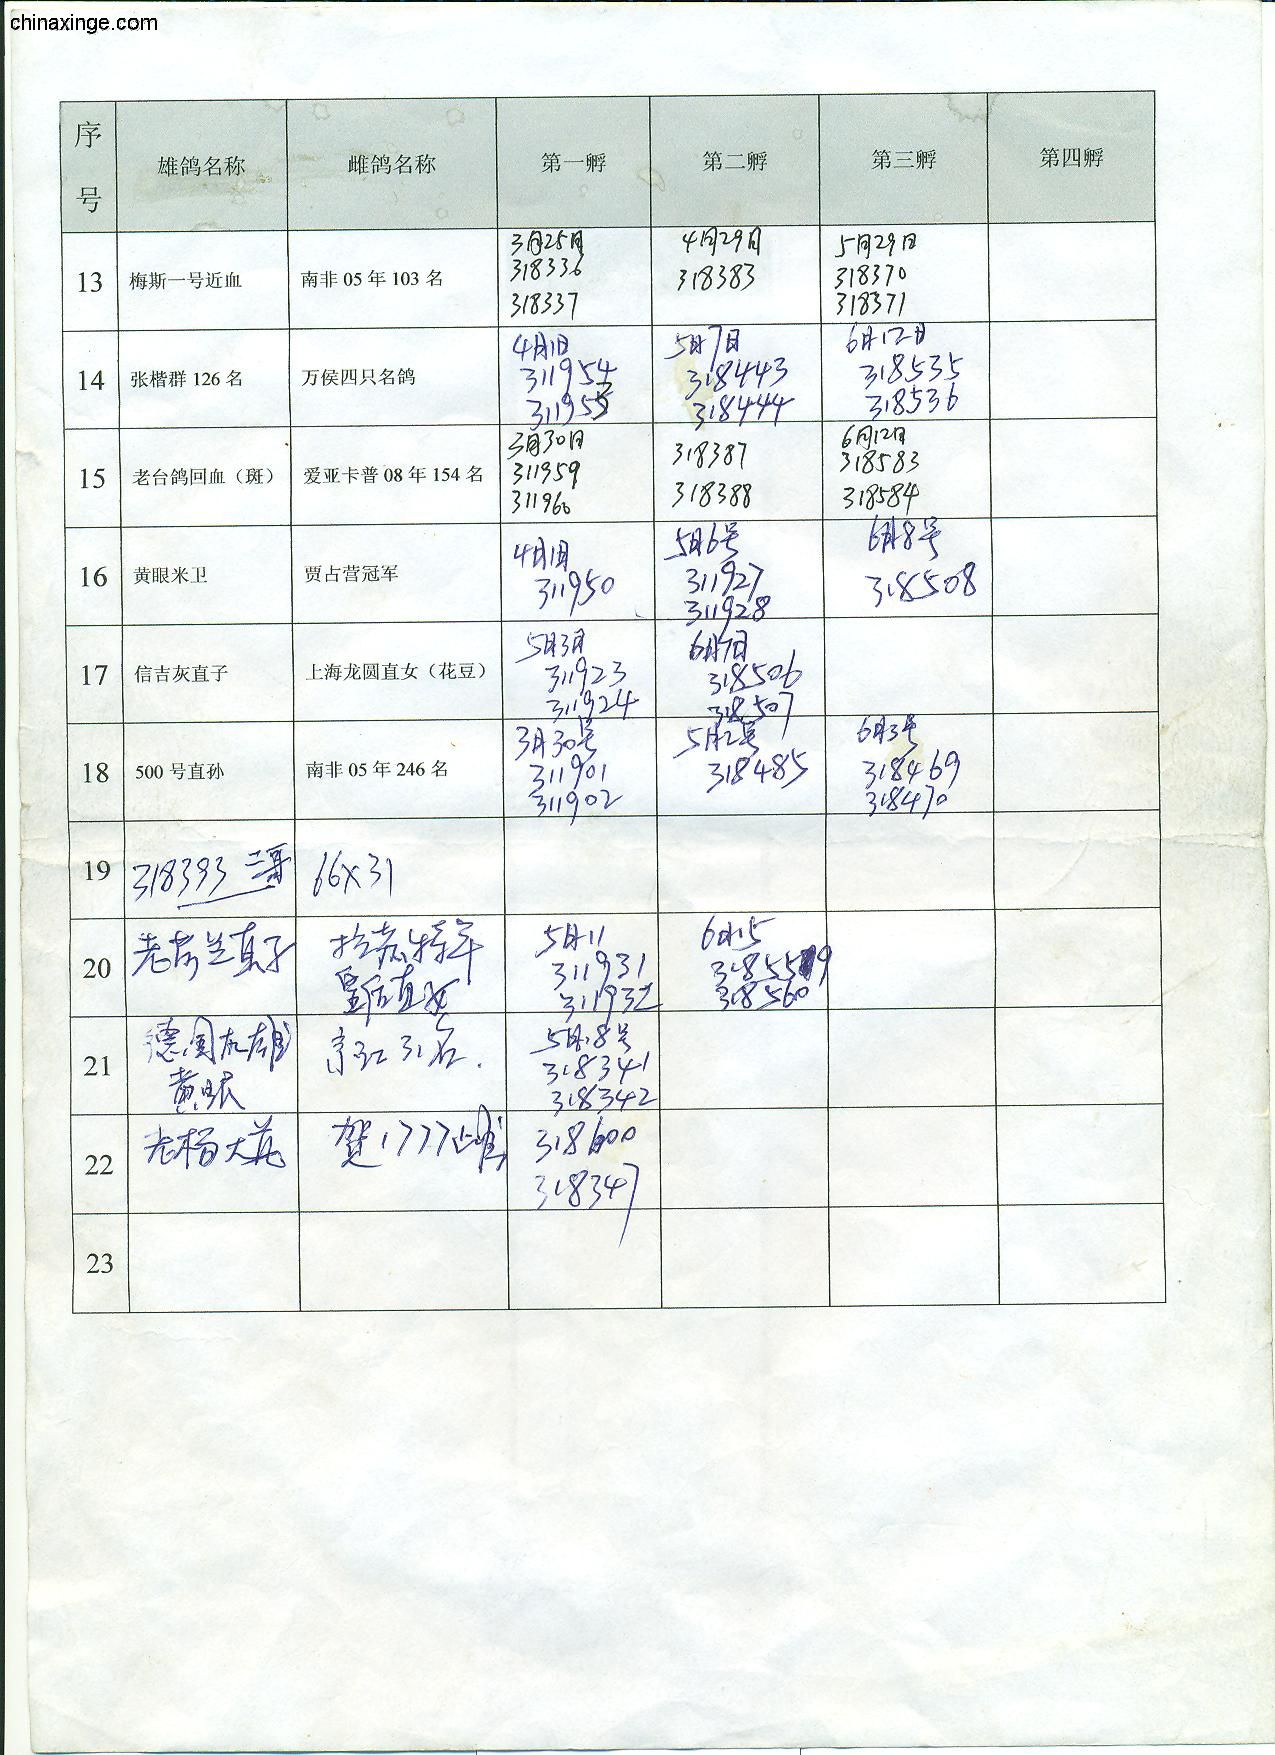 chinaxinge.com
序号 雄鸽名称 雌鸽名称 第一孵 第二孵 第三孵 第四孵
13 梅斯一号近血 南非 05 年 103 名 3月25日 4月29日 5月29日
318336 318383 318370
318337 318371
14 张楷群 126 名 万侯四只名鸽 4月1日 5月7日 6月12日
311954 318443 318535
311955 318444 318536
15 老台鸽回血（斑） 爱亚卡普 08 年 154 名 3月30日 318387 6月12日
311959 318388 318583
311960 318584
16 黄眼米卫 贾占营冠军 4月1日 5月6号 6月8号
311950 311927 318508
311928
17 信吉灰直子 上海龙圆直女（花豆） 5月3日 6月7日
311923 318506
311924 318507
18 500 号直孙 南非 05 年 246 名 3月30号 5月2号 6月3号
311901 318485 318469
311902 318470
19 318393 三哥 66X31
20 直子 5月11 6月15
皇后直女 311931 318559
311932 318560
21 德国 雄 31名. 5月18号
黄眼 318341
318342
22 老杨大花 贺1777雌 318600
318347
23